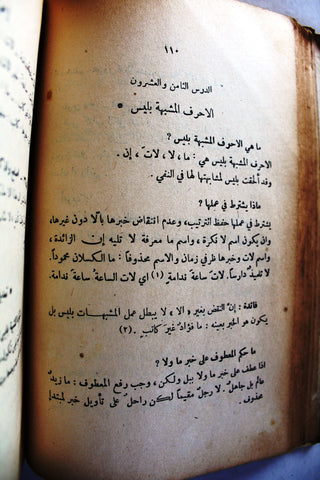 ١١٠
الدرس الثامن والعشرون
الاحرف المشبهة بليس •
ما هي الاحرف المشبهة بليس ؟
الاحرف المشبهة بليس هي : ما ، لا ، لاتَ ، إن .
وقد ألحقت بليس لمشابهتها لها في النفي .
ماذا يشترط في عملها ؟
يشترط في عملها حفظ الترتيب، وعدم انتقاض خبرها بالا دون غيرها،
وان يكون اسم لا نكرة ، واسم ما معرفة لا تليه إن الزائدة ،
واسم لات وخبرها ظرفي زمان والاسم محذوفاً : ما الكسلان محموداً.
لا تلميذٌ دارساً. لاتَ ساعةَ ندامةٍ (١) اي لات الساعةُ ساعةَ ندامة.
فائدة : إنّ النقض بغير « الا » لا يبطل عمل المشبهات بليس بل
يكون هو الخبر بعينه : ما فؤادٌ غيرَ كاتبٍ . (٢)
ما حكم المعطوف على خبر ما ولا ؟
اذا عطف على خبر ما ولا ببل ولكن ، وجب رفع المعطوف : ما زيدٌ
عالماً بل جاهلٌ . لا رجلٌ مقيماً لكن راحلٌ على تأويل خبر لمبتدإ
محذوف .